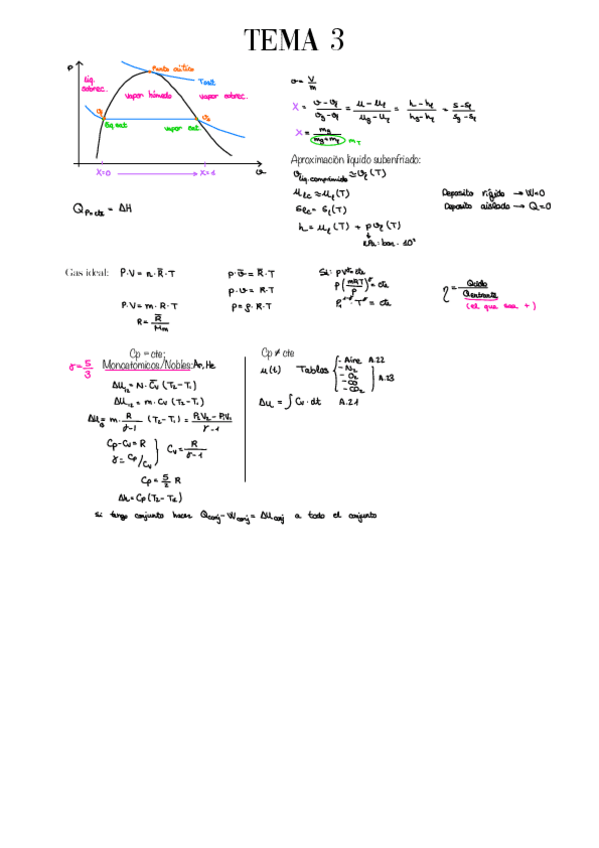 TEMA 3
P
Punto crítico
T cte
liq. sobrec.
vapor húmedo
vapor sobrec.
liq sat
vapor sat.
X=0
X=1
v
Q P=cte = ΔH
v = V/m
X = (v - vf)/(vg - vf) = (u - uf)/(ug - uf) = (h - hf)/(hg - hf) = (s - sf)/(sg - sf)
X = mg/(mg+mf) mT
Aproximación líquido subenfriado:
v liq. comprimido ≃ vf (T)
uLC ≃ uf (T)
sLC = sf (T)
h = uf (T) + p vf (T)
kPa: bar · 10²
Deposito rígido → W=0
Deposito aislado → Q=0
Gas ideal: P·V = n·R̅·T
P·V = m·R·T
R = R̅/Mm
p·v̅ = R̅·T
p·v = R·T
p = ρ·R·T
Si: pVᵞ = cte
p(mRT/p)ᵞ = cte
P¹⁻ᵞ · Tᵞ = cte
η = Qciclo/Qentrante
(el que sea +)
Cp = cte;
γ = 5/3 Monoatómicos/Nobles: Ar, He
ΔU12 = N · C̅v (T2 - T1)
ΔU12 = m · Cv (T2 - T1)
ΔU = m · R/(γ-1) (T2 - T1) = (P2V2 - P1V1)/(γ-1)
Cp - Cv = R
γ = Cp/Cv
Cv = R/(γ-1)
Cp = 5/2 R
Δh = Cp (T2 - T1)
Cp ≠ cte
u(t) Tablas
- Aire A.22
- N2
- O2
- CO
- CO2
A.23
Δu = ∫ Cv · dt A.21
Si tengo conjunto hacer Qconj - Wconj = ΔUconj a todo el conjunto